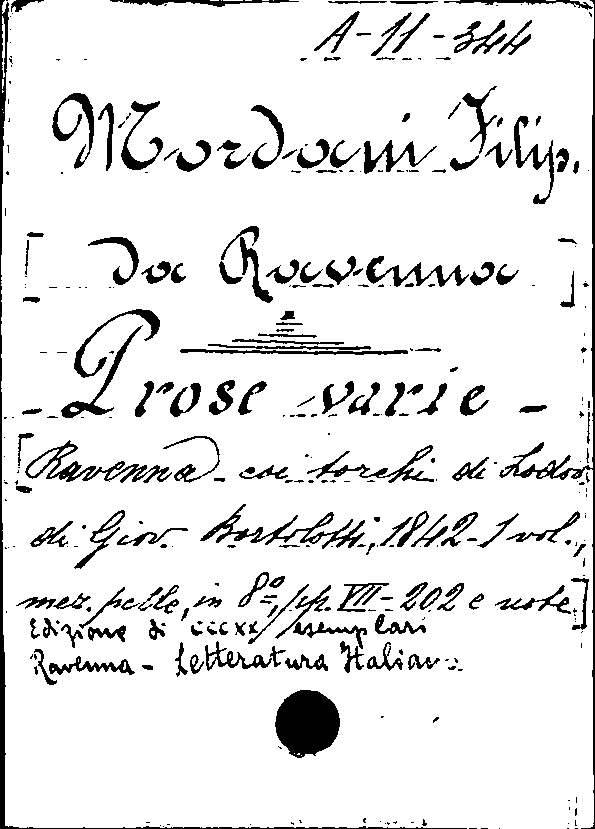 A-11-344
Mordani Filip.
[ da Ravenna ]
- Prose varie -
[Ravenna - coi torchi di Lodov.
di Giov. Bortolotti, 1842 - 1 vol.,
mez. pelle, in 8º, pp. VII - 202 e note]
Edizione di CCCXX esemplari
Ravenna - Letteratura Italiana